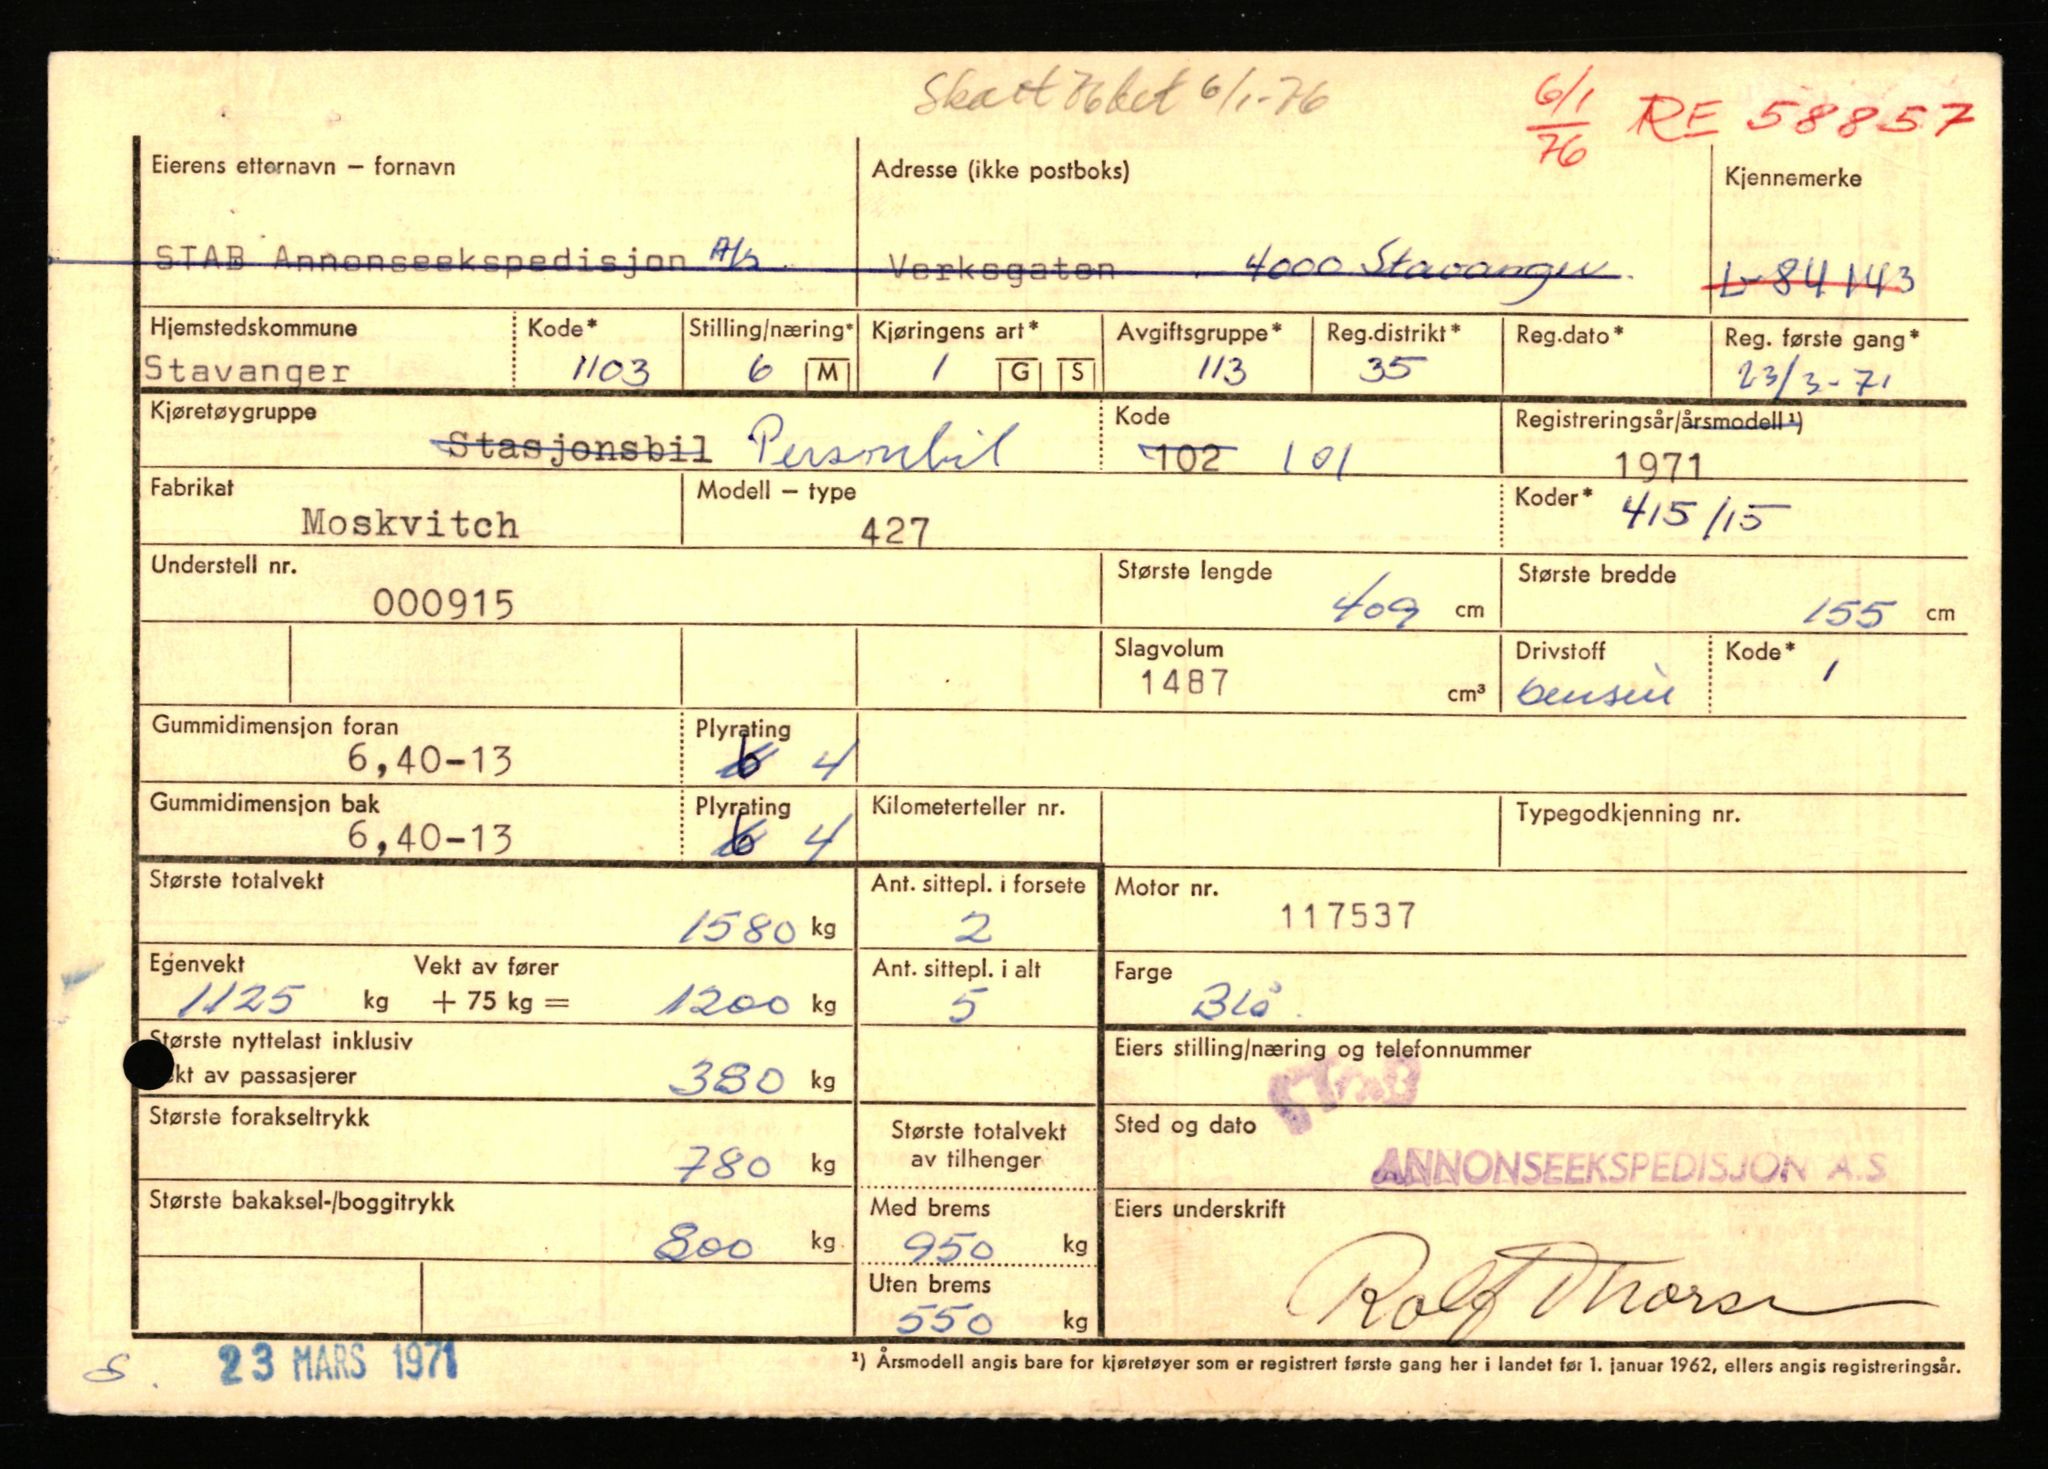 Skatt 76 bet 6/1-76
6/1 76 RE 58857
Eierens etternavn – fornavn Adresse (ikke postboks) Kjennemerke
STAB Annonseekspedisjon A/s Verksgaten 4000 Stavanger L-84143
Hjemstedskommune Kode* Stilling/næring* Kjøringens art* Avgiftsgruppe* Reg.distrikt* Reg.dato* Reg. første gang*
Stavanger 1103 6 M 1 G S 113 35 23/3-71
Kjøretøygruppe Kode Registreringsår/årsmodell¹)
Stasjonsbil Personbil 102 101 1971
Fabrikat Modell – type Koder*
Moskvitch 427 415/15
Understell nr. Største lengde Største bredde
000915 409 cm 155 cm
Slagvolum Drivstoff Kode*
1487 cm³ bensin 1
Gummidimensjon foran Plyrating
6,40-13 6 4
Gummidimensjon bak Plyrating Kilometerteller nr. Typegodkjenning nr.
6,40-13 6 4
Største totalvekt Ant. sittepl. i forsete Motor nr.
1580 kg 2 117537
Egenvekt Vekt av fører Ant. sittepl. i alt Farge
1125 kg + 75 kg = 1200 kg 5 Blå.
Største nyttelast inklusiv Eiers stilling/næring og telefonnummer
vekt av passasjerer 380 kg STAB
Største forakseltrykk Største totalvekt Sted og dato
780 kg av tilhenger ANNONSEEKSPEDISJON A.S
Største bakaksel-/boggitrykk Med brems Eiers underskrift
800 kg 950 kg
Uten brems
550 kg Rolf
23 MARS 1971 ¹) Årsmodell angis bare for kjøretøyer som er registrert første gang her i landet før 1. januar 1962, ellers angis registreringsår.